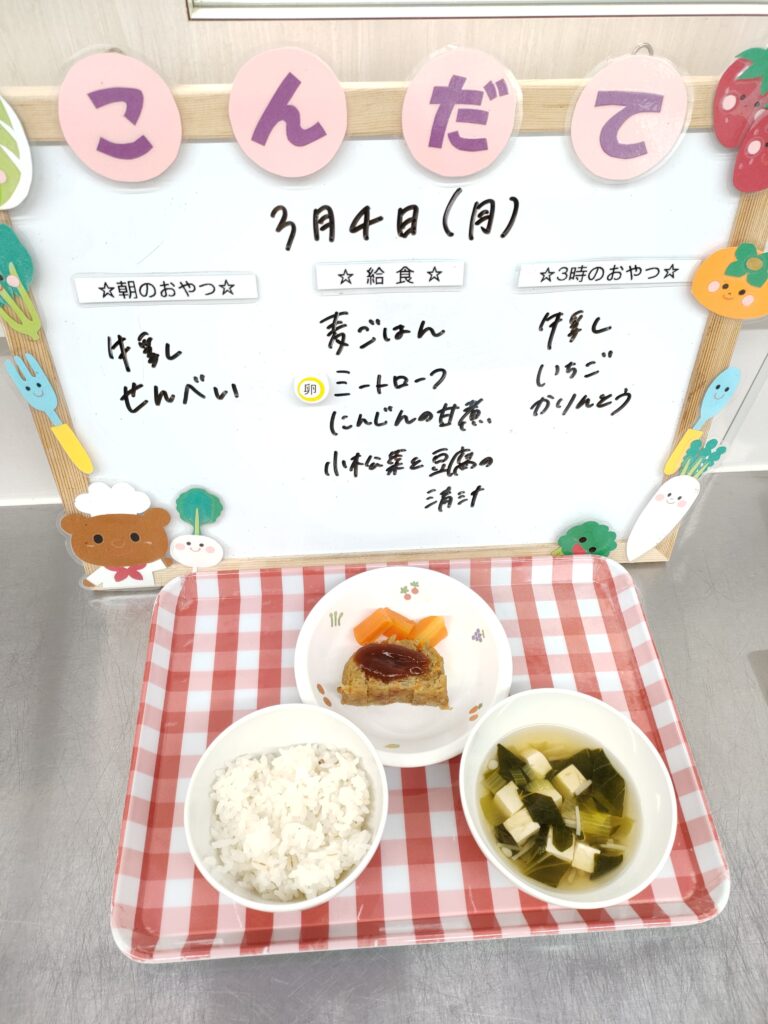 こんだて
3月4日(月)
☆朝のおやつ☆
牛乳
せんべい
☆ 給 食 ☆
麦ごはん
卵 ミートローフ
にんじんの甘煮
小松菜と豆腐の
清汁
☆3時のおやつ☆
牛乳
いちご
かりんとう